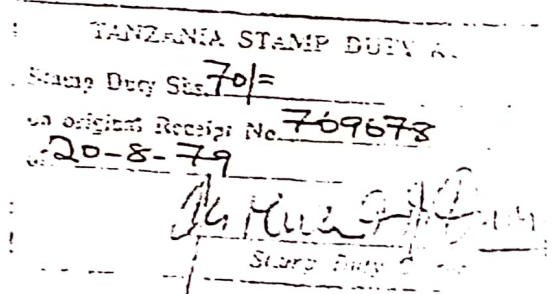 TANZANIA STAMP DUTY A.
Stamp Duty Shs. 70/=
on original Receipt No. 709678
of 20-8-79
Stamp Duty